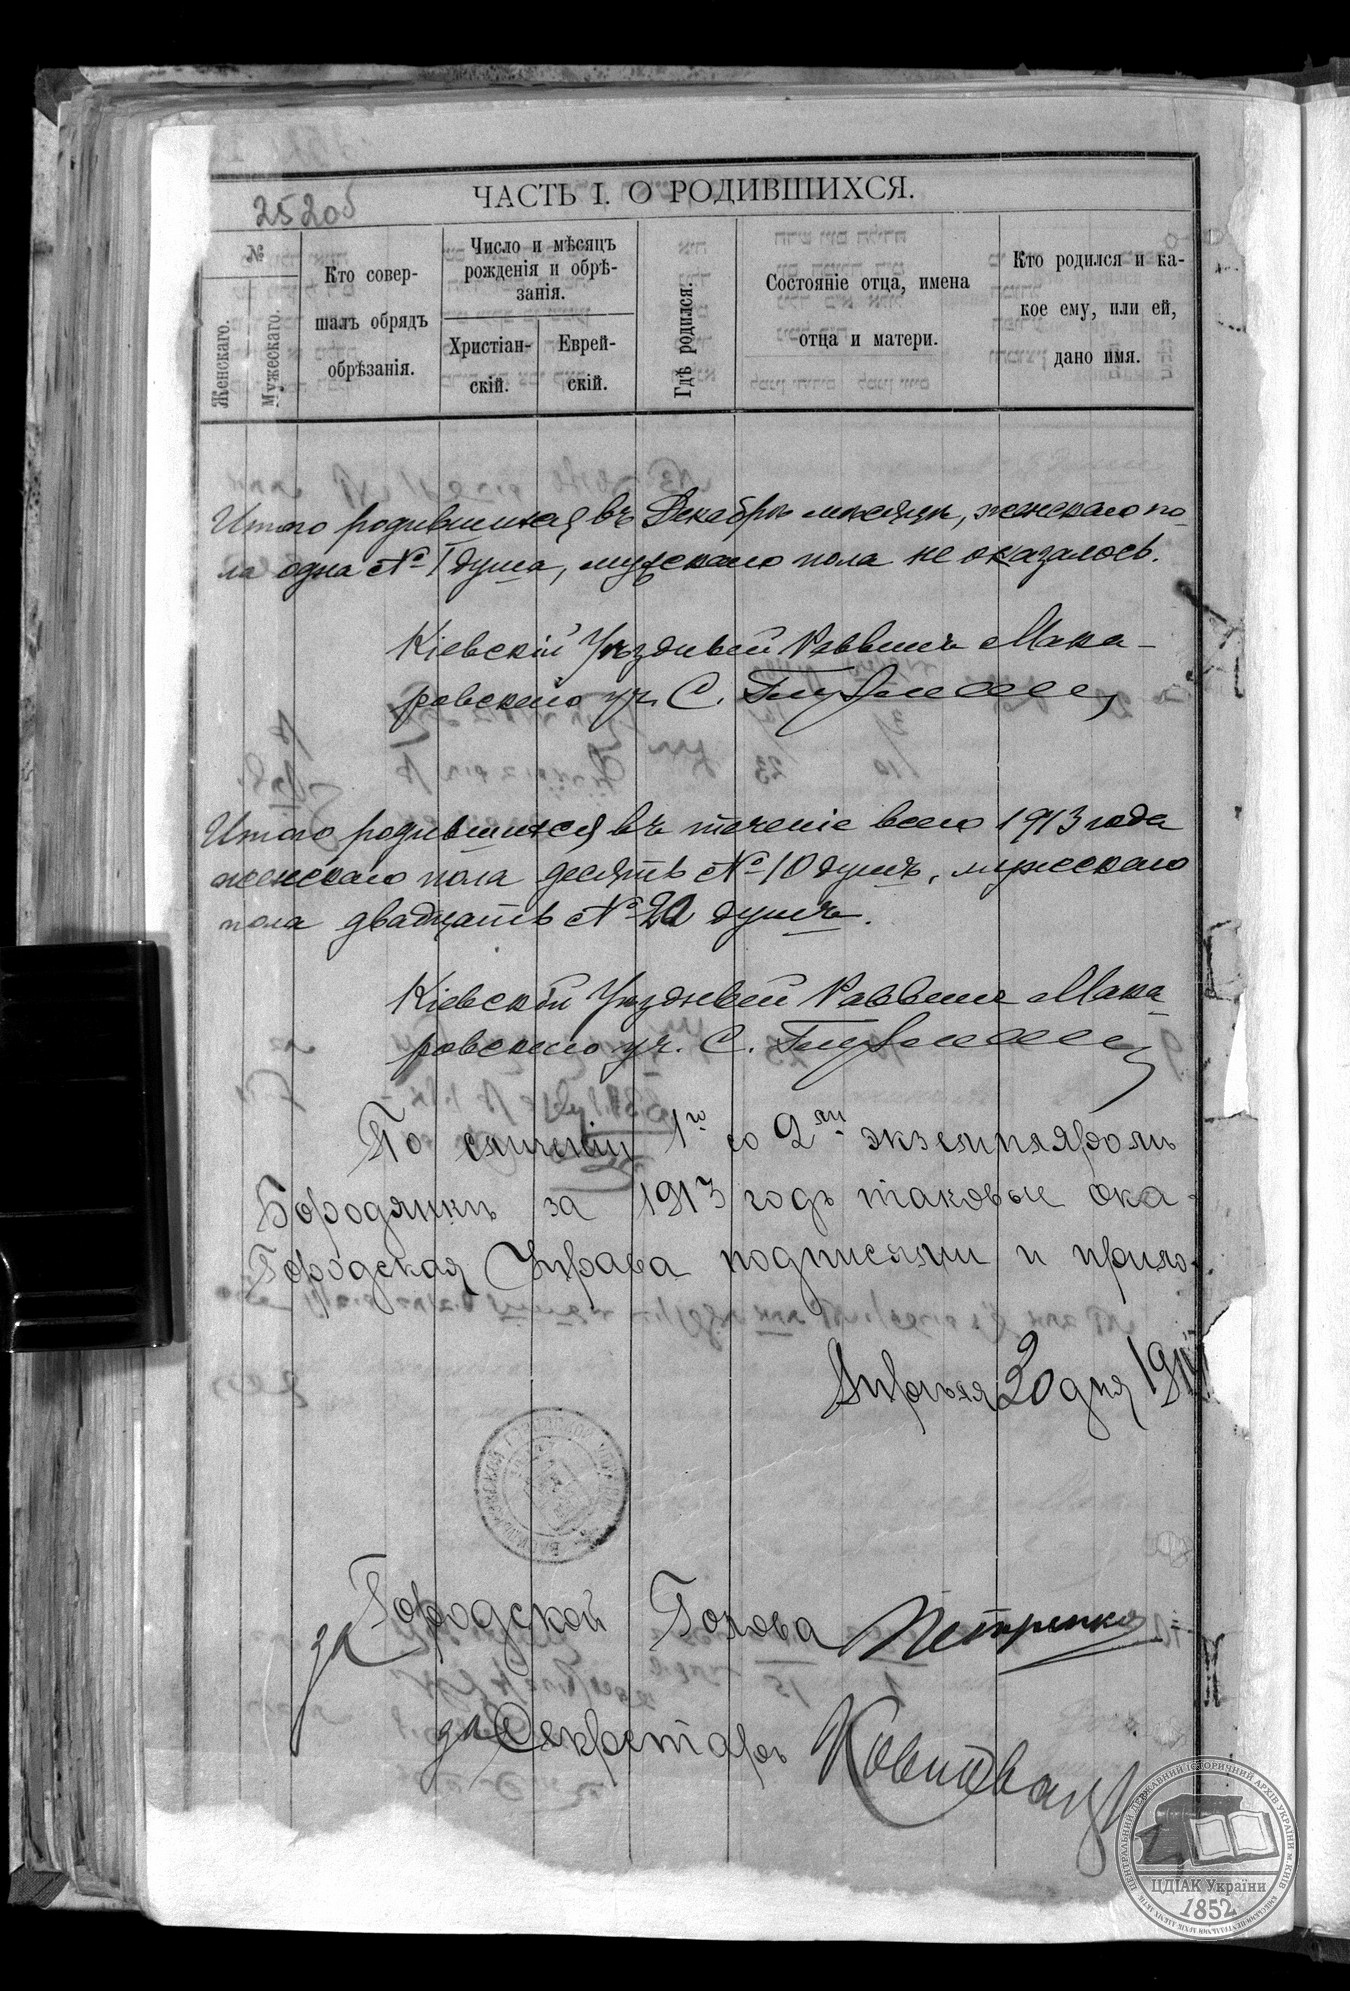 252об
ЧАСТЬ I. О РОДИВШИХСЯ.
№
Женскаго.
Мужескаго.
Кто совер-
шалъ обрядъ
обрѣзанія.
Число и мѣсяцъ
рожденія и обрѣ-
занія.
Христіан-
скій.
Еврей-
скій.
Гдѣ родился.
Состояніе отца, имена
отца и матери.
Кто родился и ка-
кое ему, или ей,
дано имя.
Итого родившихся въ Декабрѣ мѣсяцѣ, женскаго по-
ла одна № 1 душа, мужскаго пола не оказалось.
Кіевскій Уѣздный Раввинъ Мака-
ровскаго уч. С.
Итого родившихся въ теченіе всего 1913 года
женскаго пола десять № 10 душъ, мужескаго
пола двадцать № 20 душъ.
Кіевскій Уѣздный Раввинъ Мака-
ровскаго уч. С.
По сличеніи 1го со 2мъ экземпляромъ
Бородянки за 1913 годъ таковые ока-
Городская Управа подписями и прило-
Апрѣля 30 дня 191
за Городской Голова Петренко
за Секретаръ
ЦЕНТРАЛЬНИЙ ДЕРЖАВНИЙ ІСТОРИЧНИЙ АРХІВ УКРАЇНИ М. КИЇВ
ЦДІАК України
1852